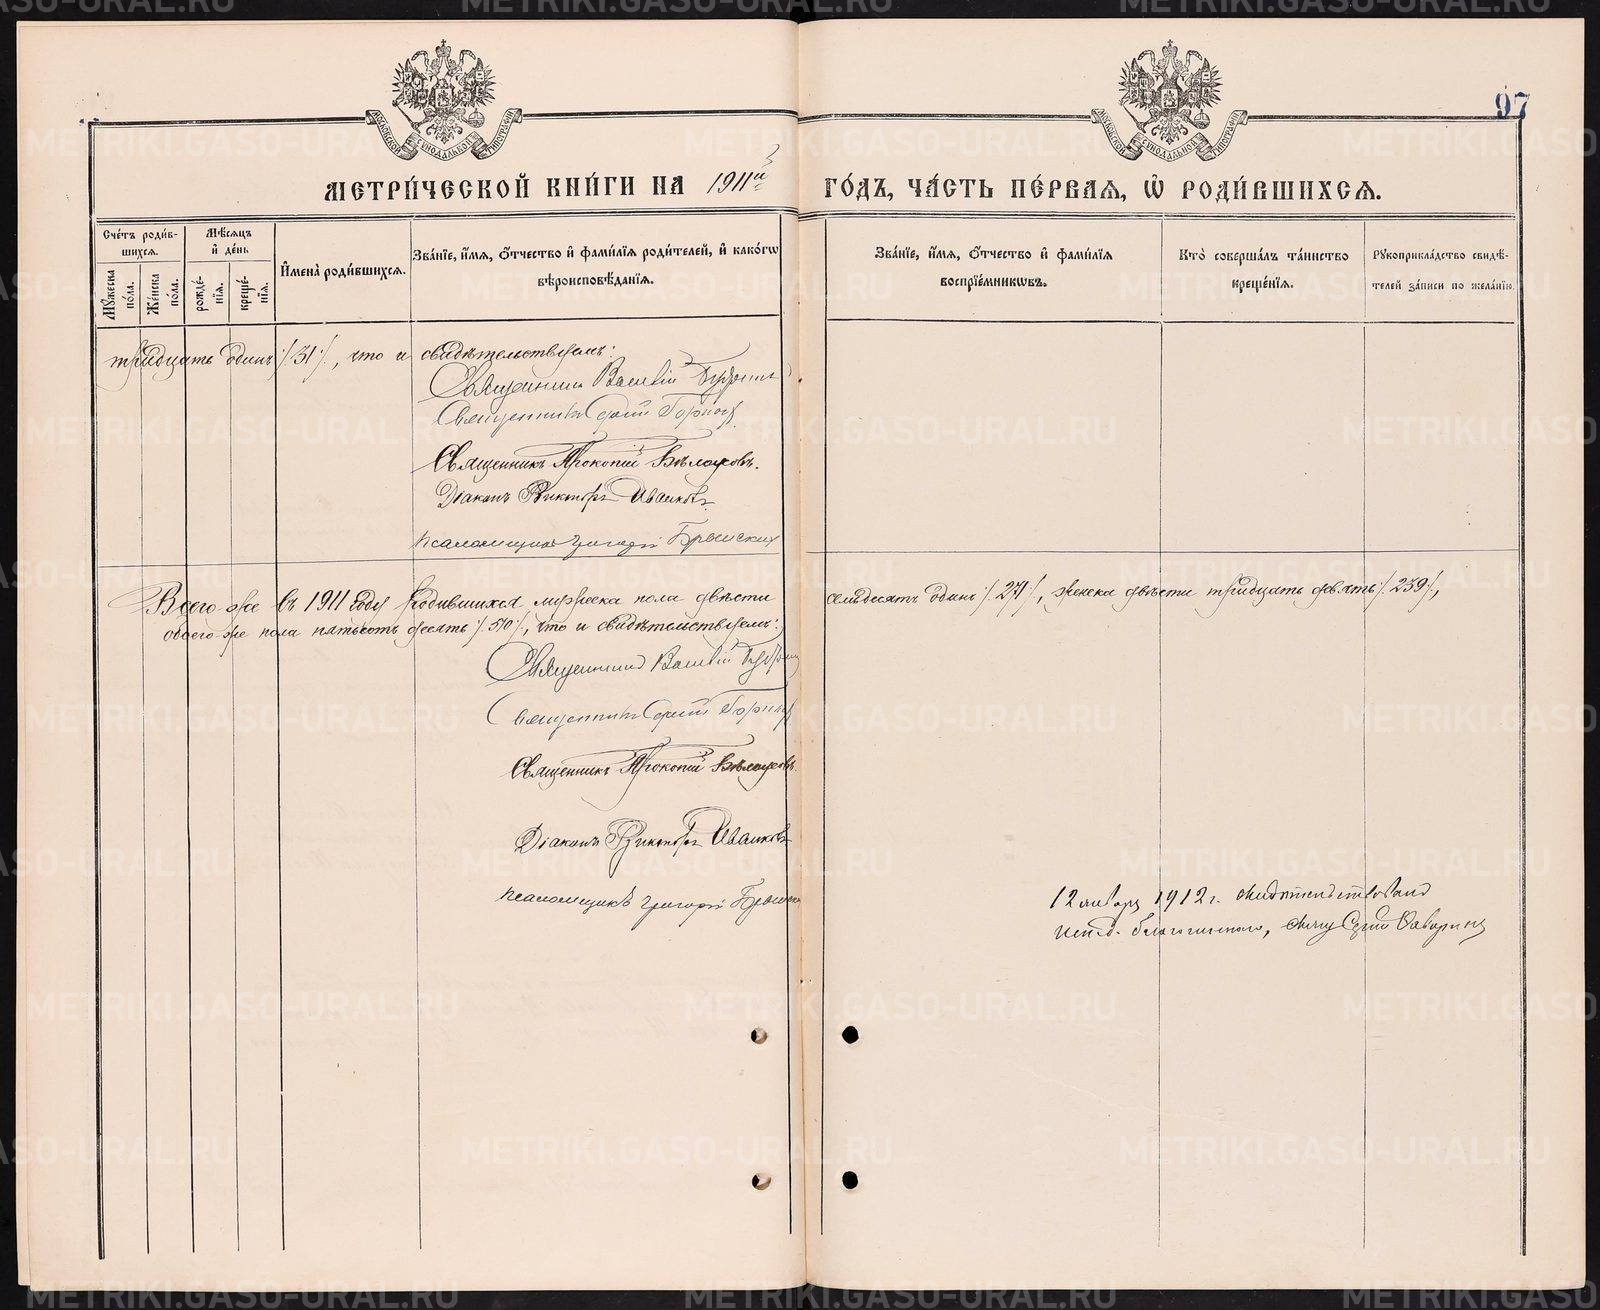 97
МОСКОВСКОЙ СѴНОДАЛЬНОЙ ТИПОГРАФІИ
МОСКОВСКОЙ СѴНОДАЛЬНОЙ ТИПОГРАФІИ
МЕТРИ́ЧЕСКОЙ КНИ́ГИ НА 1911й ГО́ДЪ, ЧА́СТЬ ПЕ́РВАЯ, Ѡ҆ РОДИ́ВШИХСЯ.
Сче́тъ роди́в-
шихся.
Му́жеска по́ла.
Же́нска по́ла.
Мѣ́сяцъ
и҆ де́нь
рожде́-
нїя.
креще́-
нїя.
И҆мена̀ роди́вшихся.
Зва́нїе, и҆́мя, ѻ҆́тчество и҆ фами́лїя роди́телей, и҆ како́гѡ
вѣроисповѣ́данїя.
Зва́нїе, и҆́мя, ѻ҆́тчество и҆ фами́лїя
воспрїе́мникѡвъ.
Кто̀ соверша́лъ та́инство
креще́нїя.
Рꙋкоприкла́дство свидѣ́-
телей за́писи по жела́нїю.
тридцать одинъ :/.31:/., что и свидѣтельствуемъ:
Священникъ Василій
Священникъ Сергій
Священникъ Прокопій Бѣлоусовъ.
Діаконъ Викторъ Ивашковъ
Псаломщикъ Григорій
Всего же въ 1911 году родившихся мужеска пола двѣсти семьдесятъ одинъ :/.271/., женска двѣсти тридцать девять :/.239/.,
обоего же пола пятьсотъ десять :/.510:/., что и свидѣтельствуемъ:
Священникъ Василій
Священникъ Сергій
Священникъ Прокопій Бѣлоусовъ
Діаконъ Викторъ Ивашковъ
Псаломщикъ Григорій
12 января 1912 г. свидѣтельствовалъ
благочиннаго, свящ Сергій
METRIKI.GASO-URAL.RU